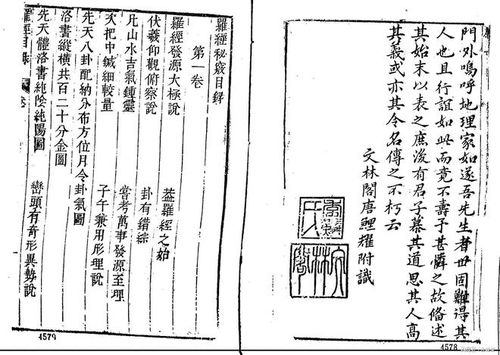 門外嗚呼地理家如遂吾先生者世固難得其
人也且行誼如此而竟不壽予甚憐之故俻述
其始末以表之庶後有君子慕其道思其人高
其義或亦其令名傳之不朽云
文林閣唐鯉耀附識
文林閣
4578
羅經秘竅目錄
第一卷
羅經發源太極說
葢羅經之始
伏羲仰觀俯察說
卦有錯綜
凡山水吉氣鍾靈
當考萬事發源至理
次把中鍼細較量
子午兼用形理說
先天八卦配納分布方位月令卦氣圖
洛書縱橫共百二十分金圖
先天體洛書純陰純陽圖
巒頭有奇形異勢說
4579